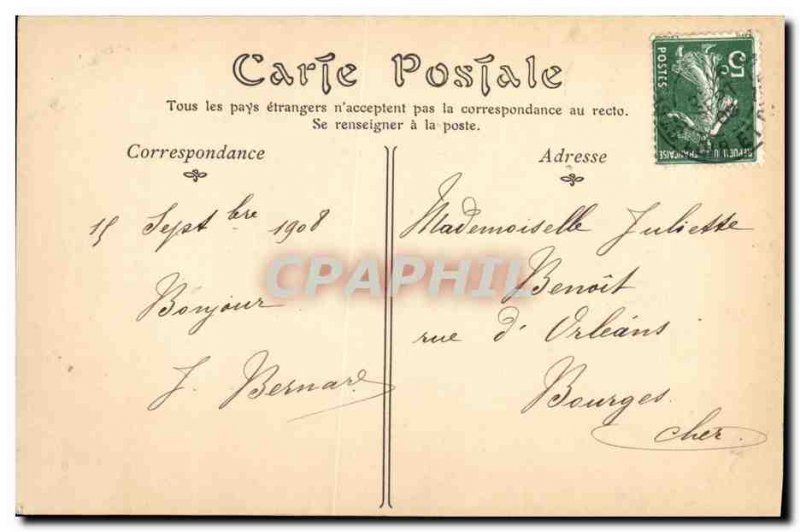 Carte Postale
Tous les pays étrangers n'acceptent pas la correspondance au recto.
Se renseigner à la poste.
Correspondance
15 Septbre 1908
Bonjour
J. Bernard
Adresse
Mademoiselle Juliette
Benoît
rue d'Orléans
Bourges
Cher
5c
POSTES
REPUBLIQUE FRANÇAISE
CPAPHIL